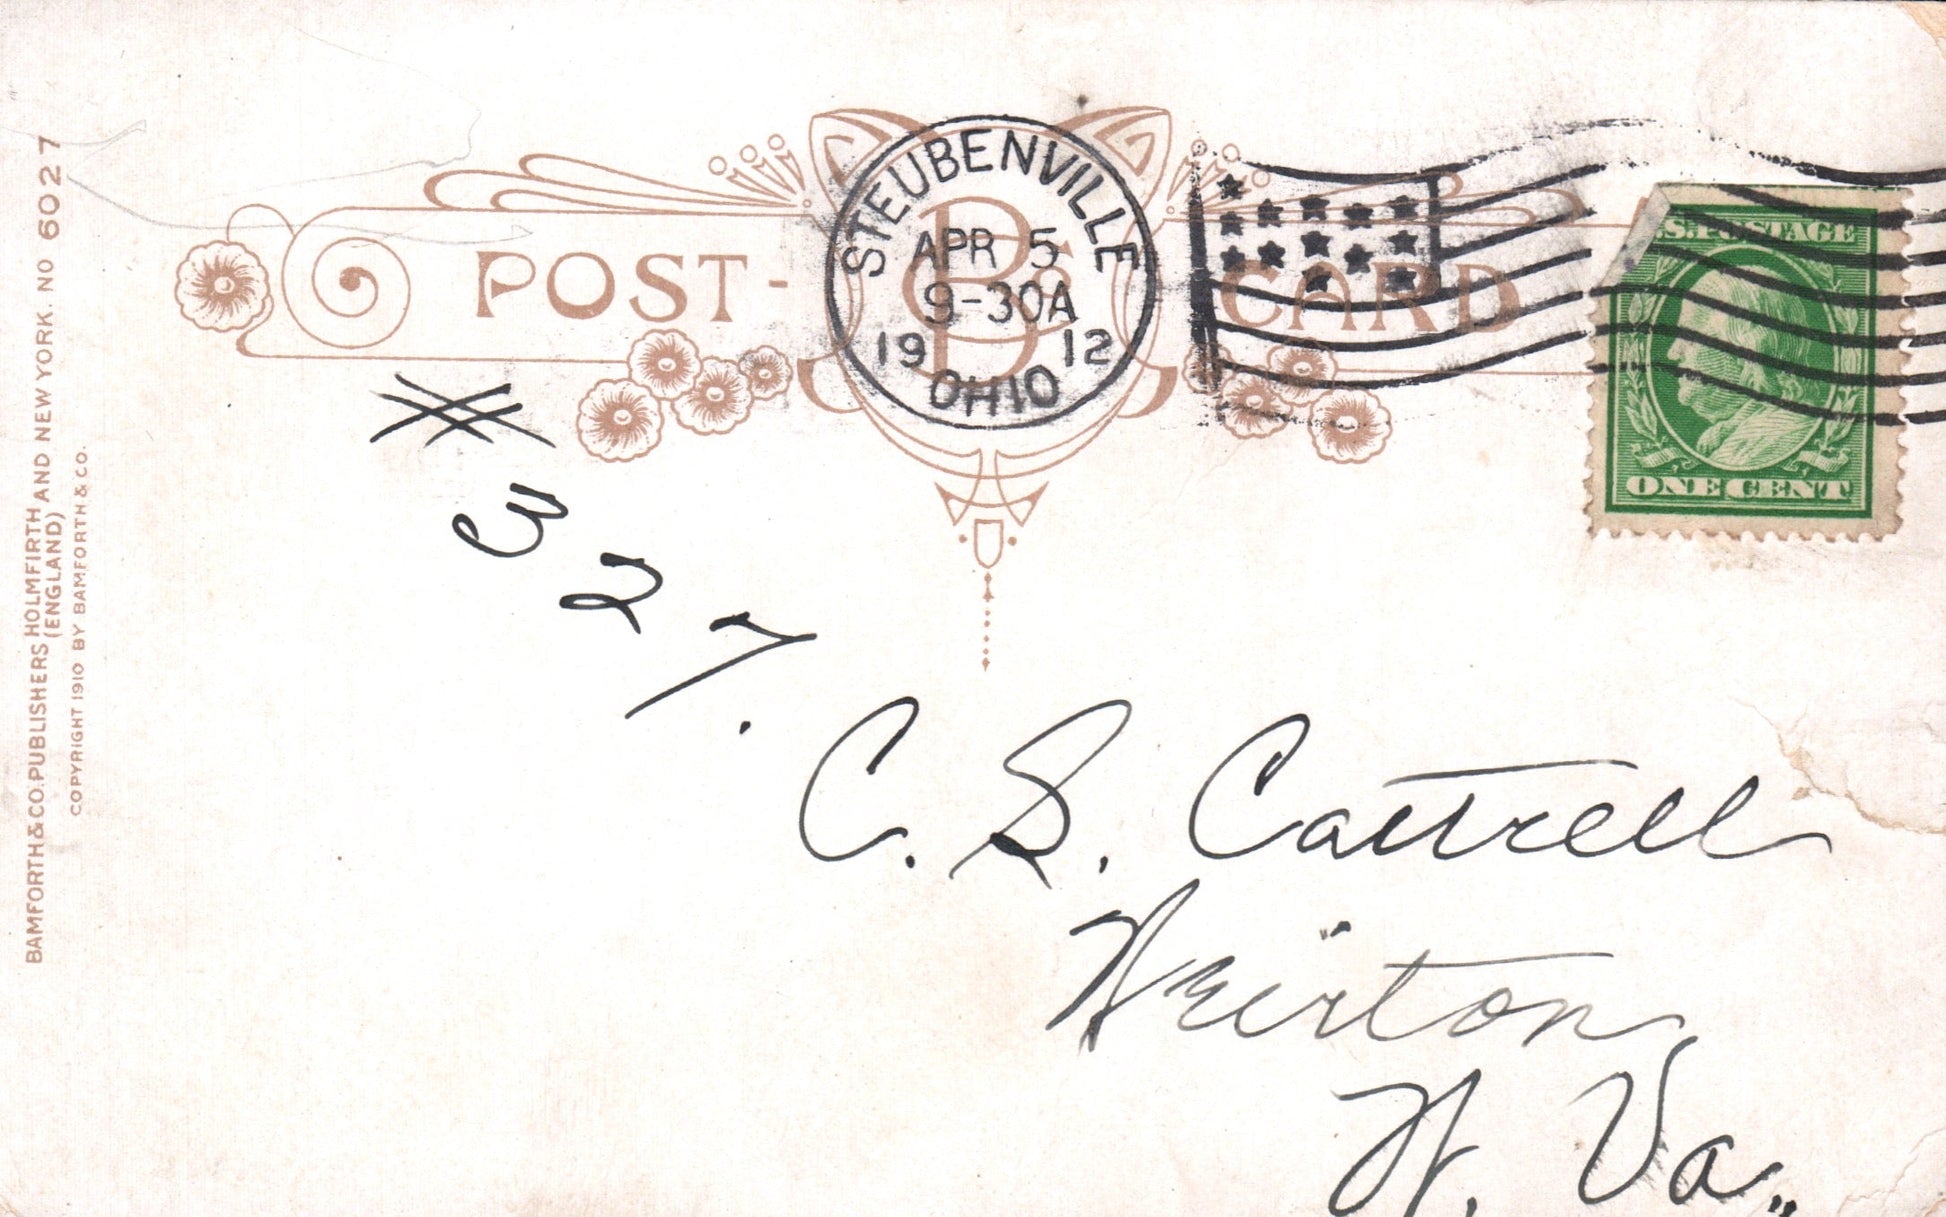 BAMFORTH & CO. PUBLISHERS HOLMFIRTH AND NEW YORK. NO 6027
(ENGLAND)
COPYRIGHT 1910 BY BAMFORTH & CO.
POST-CARD
B & Co
STEUBENVILLE
APR 5
9-30A
1912
OHIO
U.S. POSTAGE
ONE CENT
# 327.
C. S. Cattrell
Weirton
W. Va.,